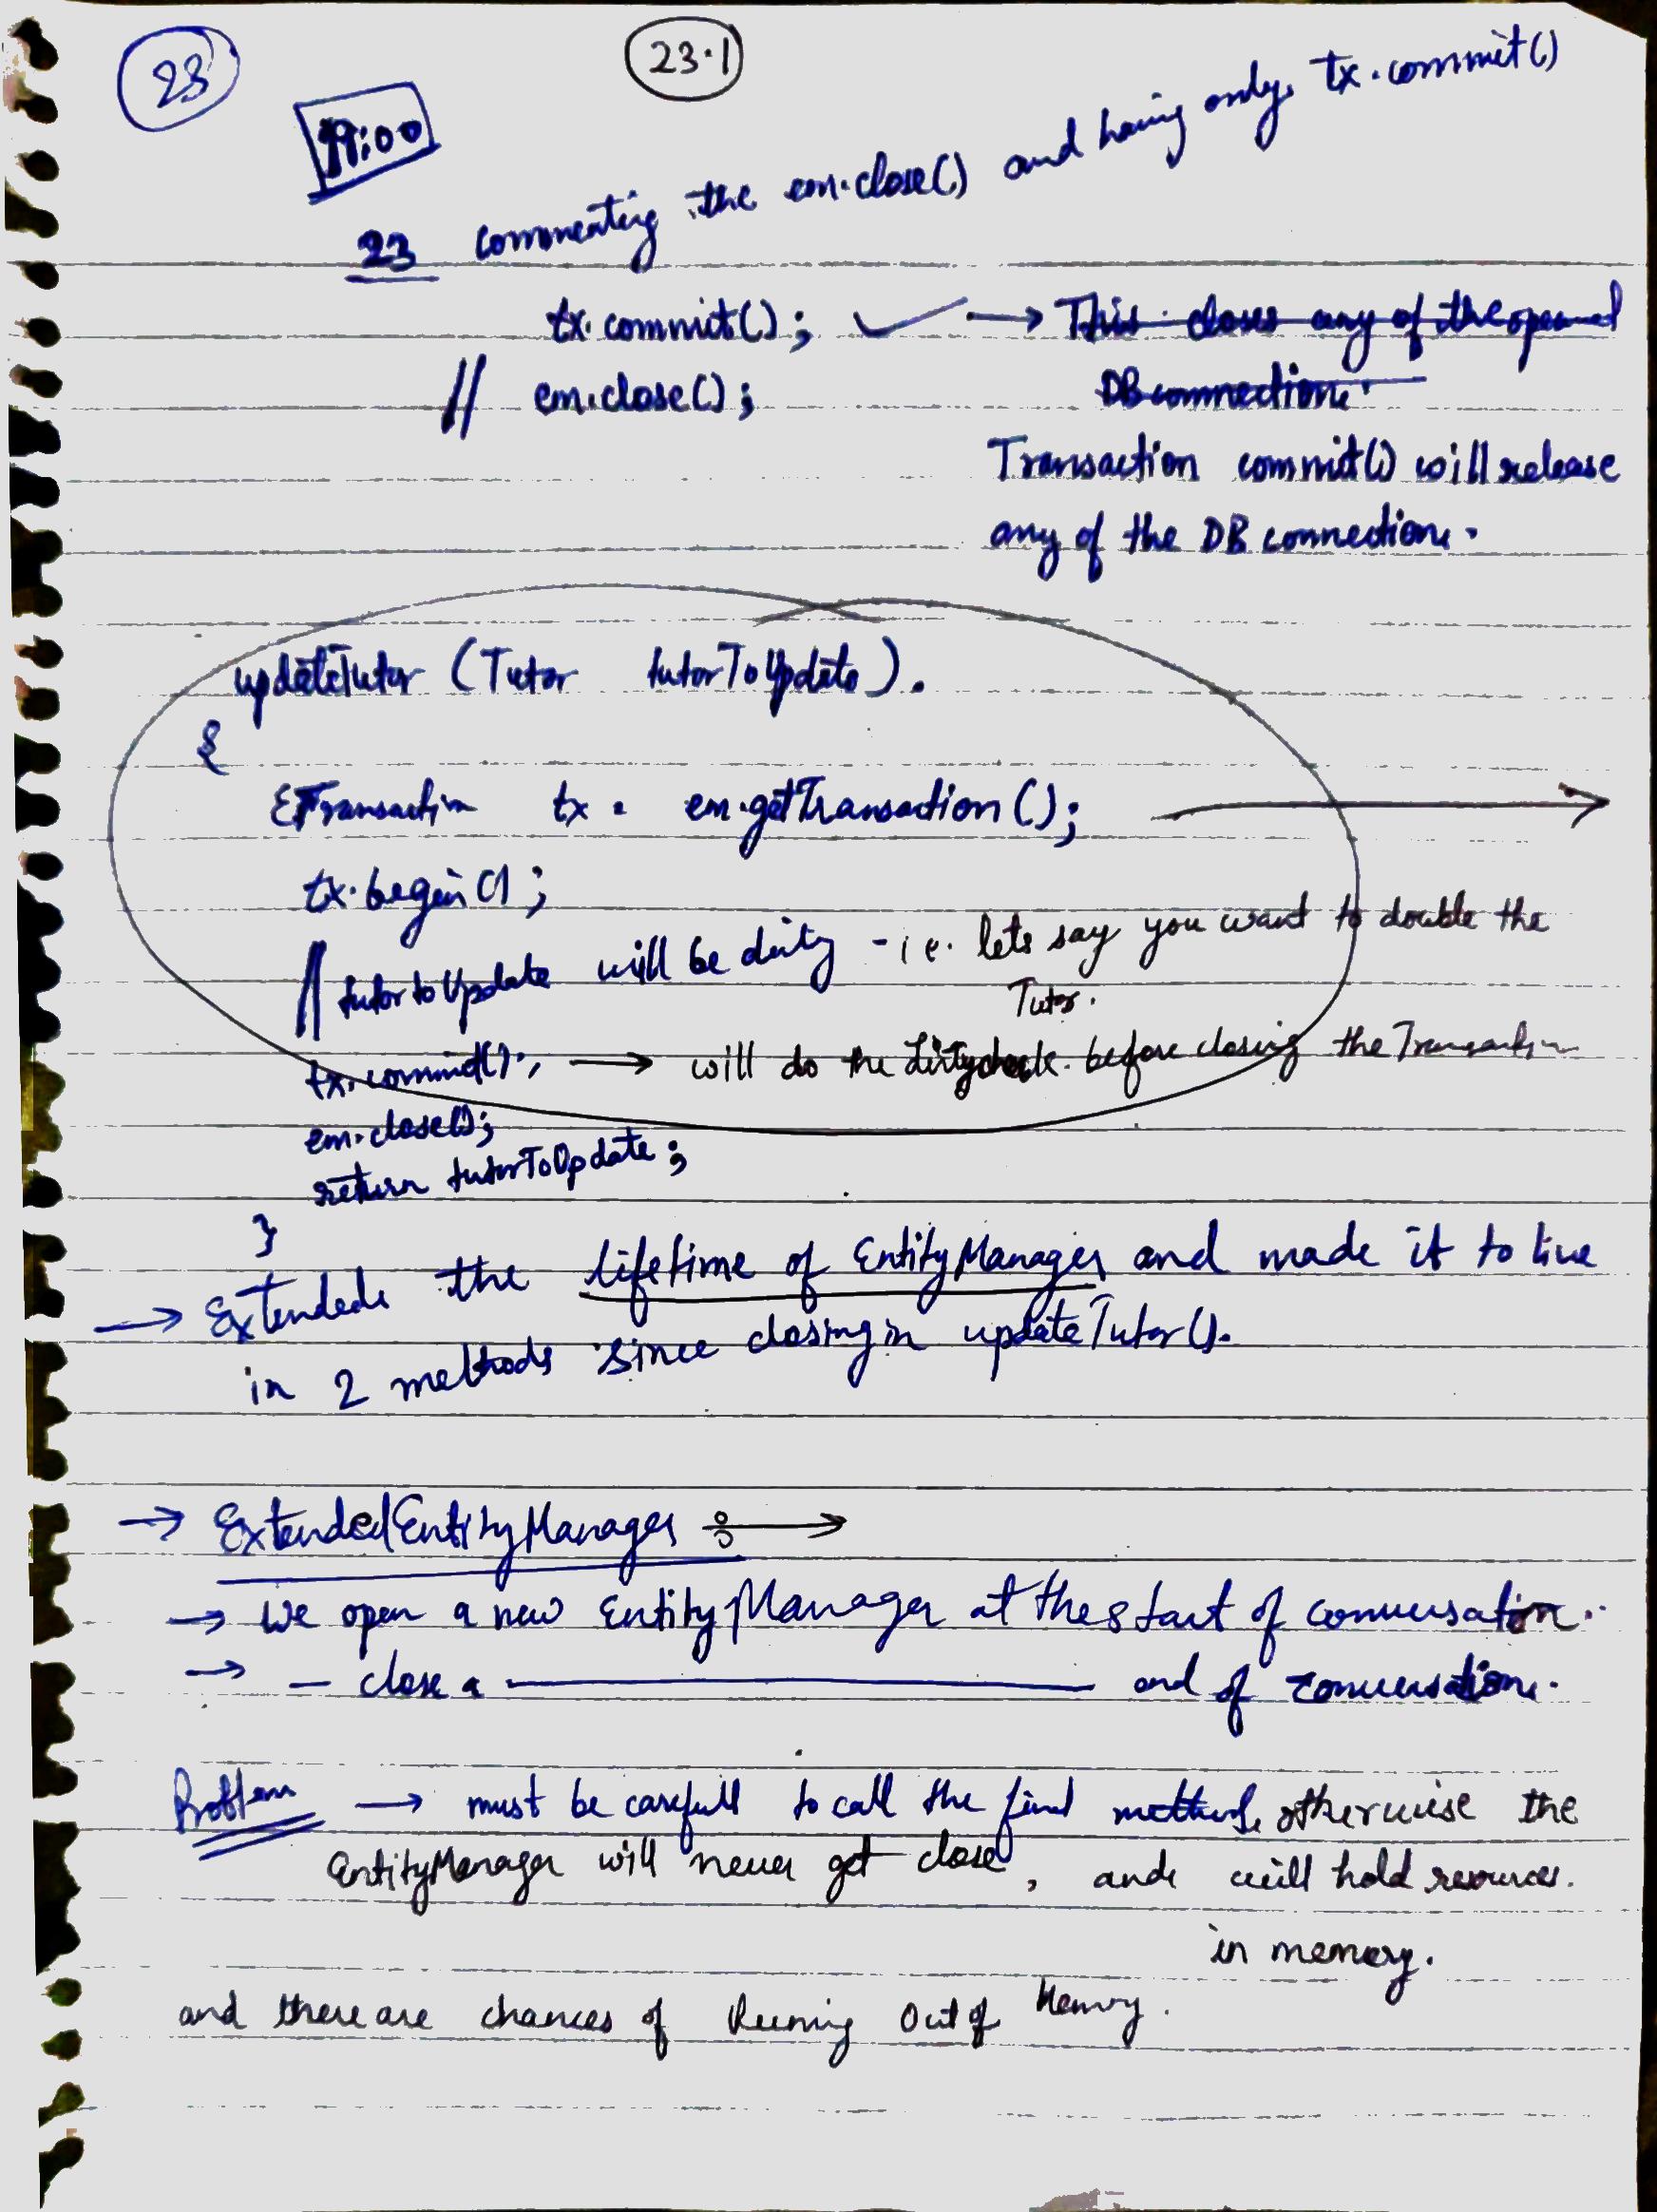 23
23.1
19:00
23 commenting the em.close() and having only tx.commit()
tx.commit(); ✓ → This closes any of the opened
// em.close(); DB connection.
Transaction commit() will release
any of the DB connection.
updateTutor (Tutor tutorToUpdate).
{
ETransaction tx = em.getTransaction(); →
tx.begin();
// tutortoUpdate will be dirty - i.e. lets say you want to double the
Tutor.
tx.commit(); → will do the Dirtycheck before closing the Transaction
em.close();
return tutorToUpdate;
}
→ Extended the lifetime of EntityManager and made it to live
in 2 methods since closing in updateTutor().
→ ExtendedEntityManager : →
→ We open a new EntityManager at the start of conversation.
→ — close a ———— end of conversation.
Problem → must be carefull to call the find method, otherwise the
EntityManager will never get close, and will hold resources.
in memory.
and there are chances of Running Out of Memory.